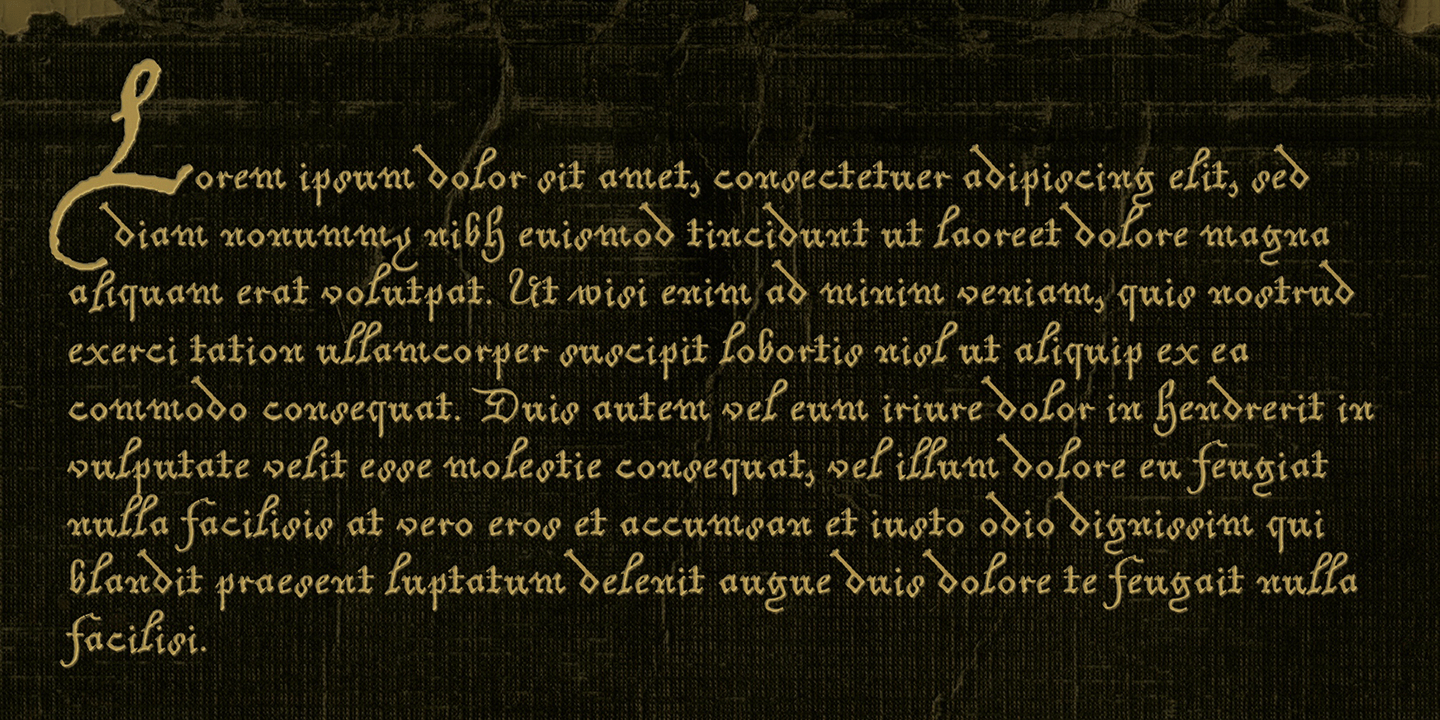 Lorem ipsum dolor sit amet, consectetuer adipiscing elit, sed
diam nonummy nibh euismod tincidunt ut laoreet dolore magna
aliquam erat volutpat. Ut wisi enim ad minim veniam, quis nostrud
exerci tation ullamcorper suscipit lobortis nisl ut aliquip ex ea
commodo consequat. Duis autem vel eum iriure dolor in hendrerit in
vulputate velit esse molestie consequat, vel illum dolore eu feugiat
nulla facilisis at vero eros et accumsan et iusto odio dignissim qui
blandit praesent luptatum delenit augue duis dolore te feugait nulla
facilisi.